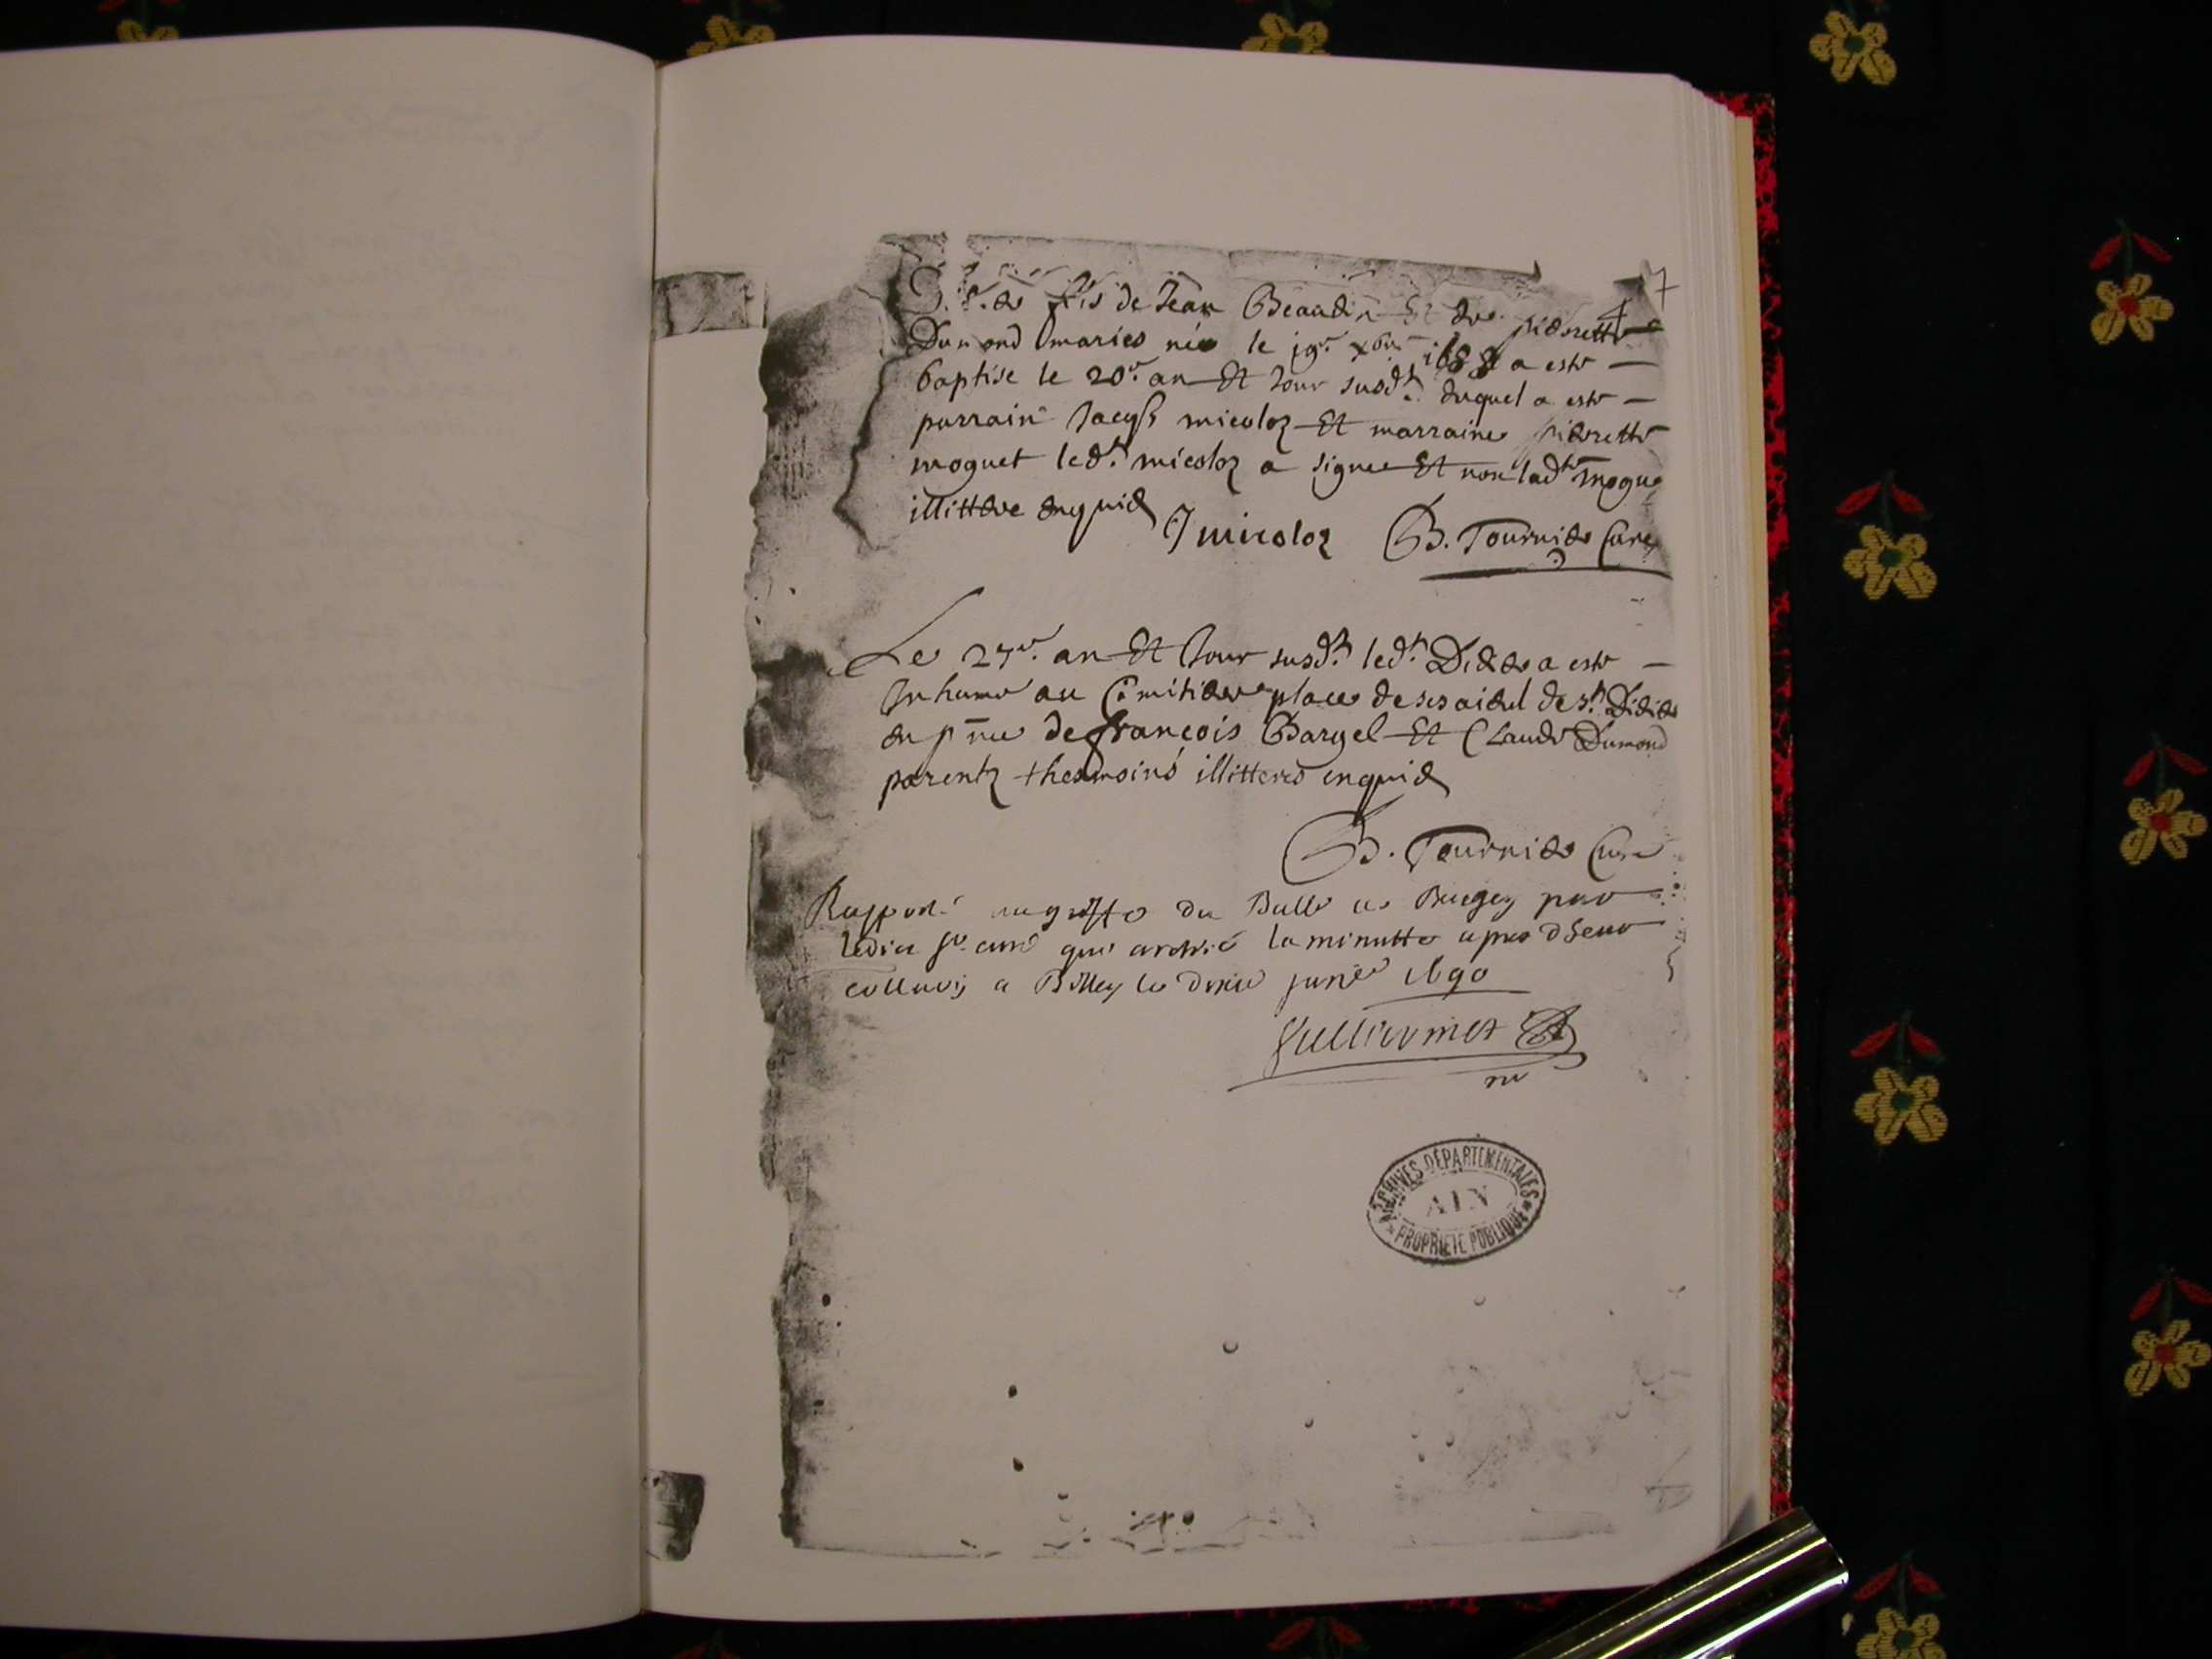 7
fils de Jean Beaudin Et de pierrette
Dumond maries née le 19e xbre 1689 a este
baptise le 20e an Et Jour susdt duquel a este
parrain Jacqs micoloz Et marraine pierrette
moguet ledt micoloz a signe Et non ladte mogue
illittere enquis
J micoloz B. Tournier Cure
Le 27e an Et Jour susdt ledt Didier a este
Inhume au Cimitiere place de ses aieul de st Didier
en pnce de francois Bargel Et Claude Dumond
parentz thesmoins illitteres enquis
B. Tournier Cure
Rapporté au greffe du Balle de Bugey par
ledict sr curé qui a la minutte apres
a Belley le 1690
ARCHIVES DÉPARTEMENTALES
AIN
PROPRIÉTÉ PUBLIQUE